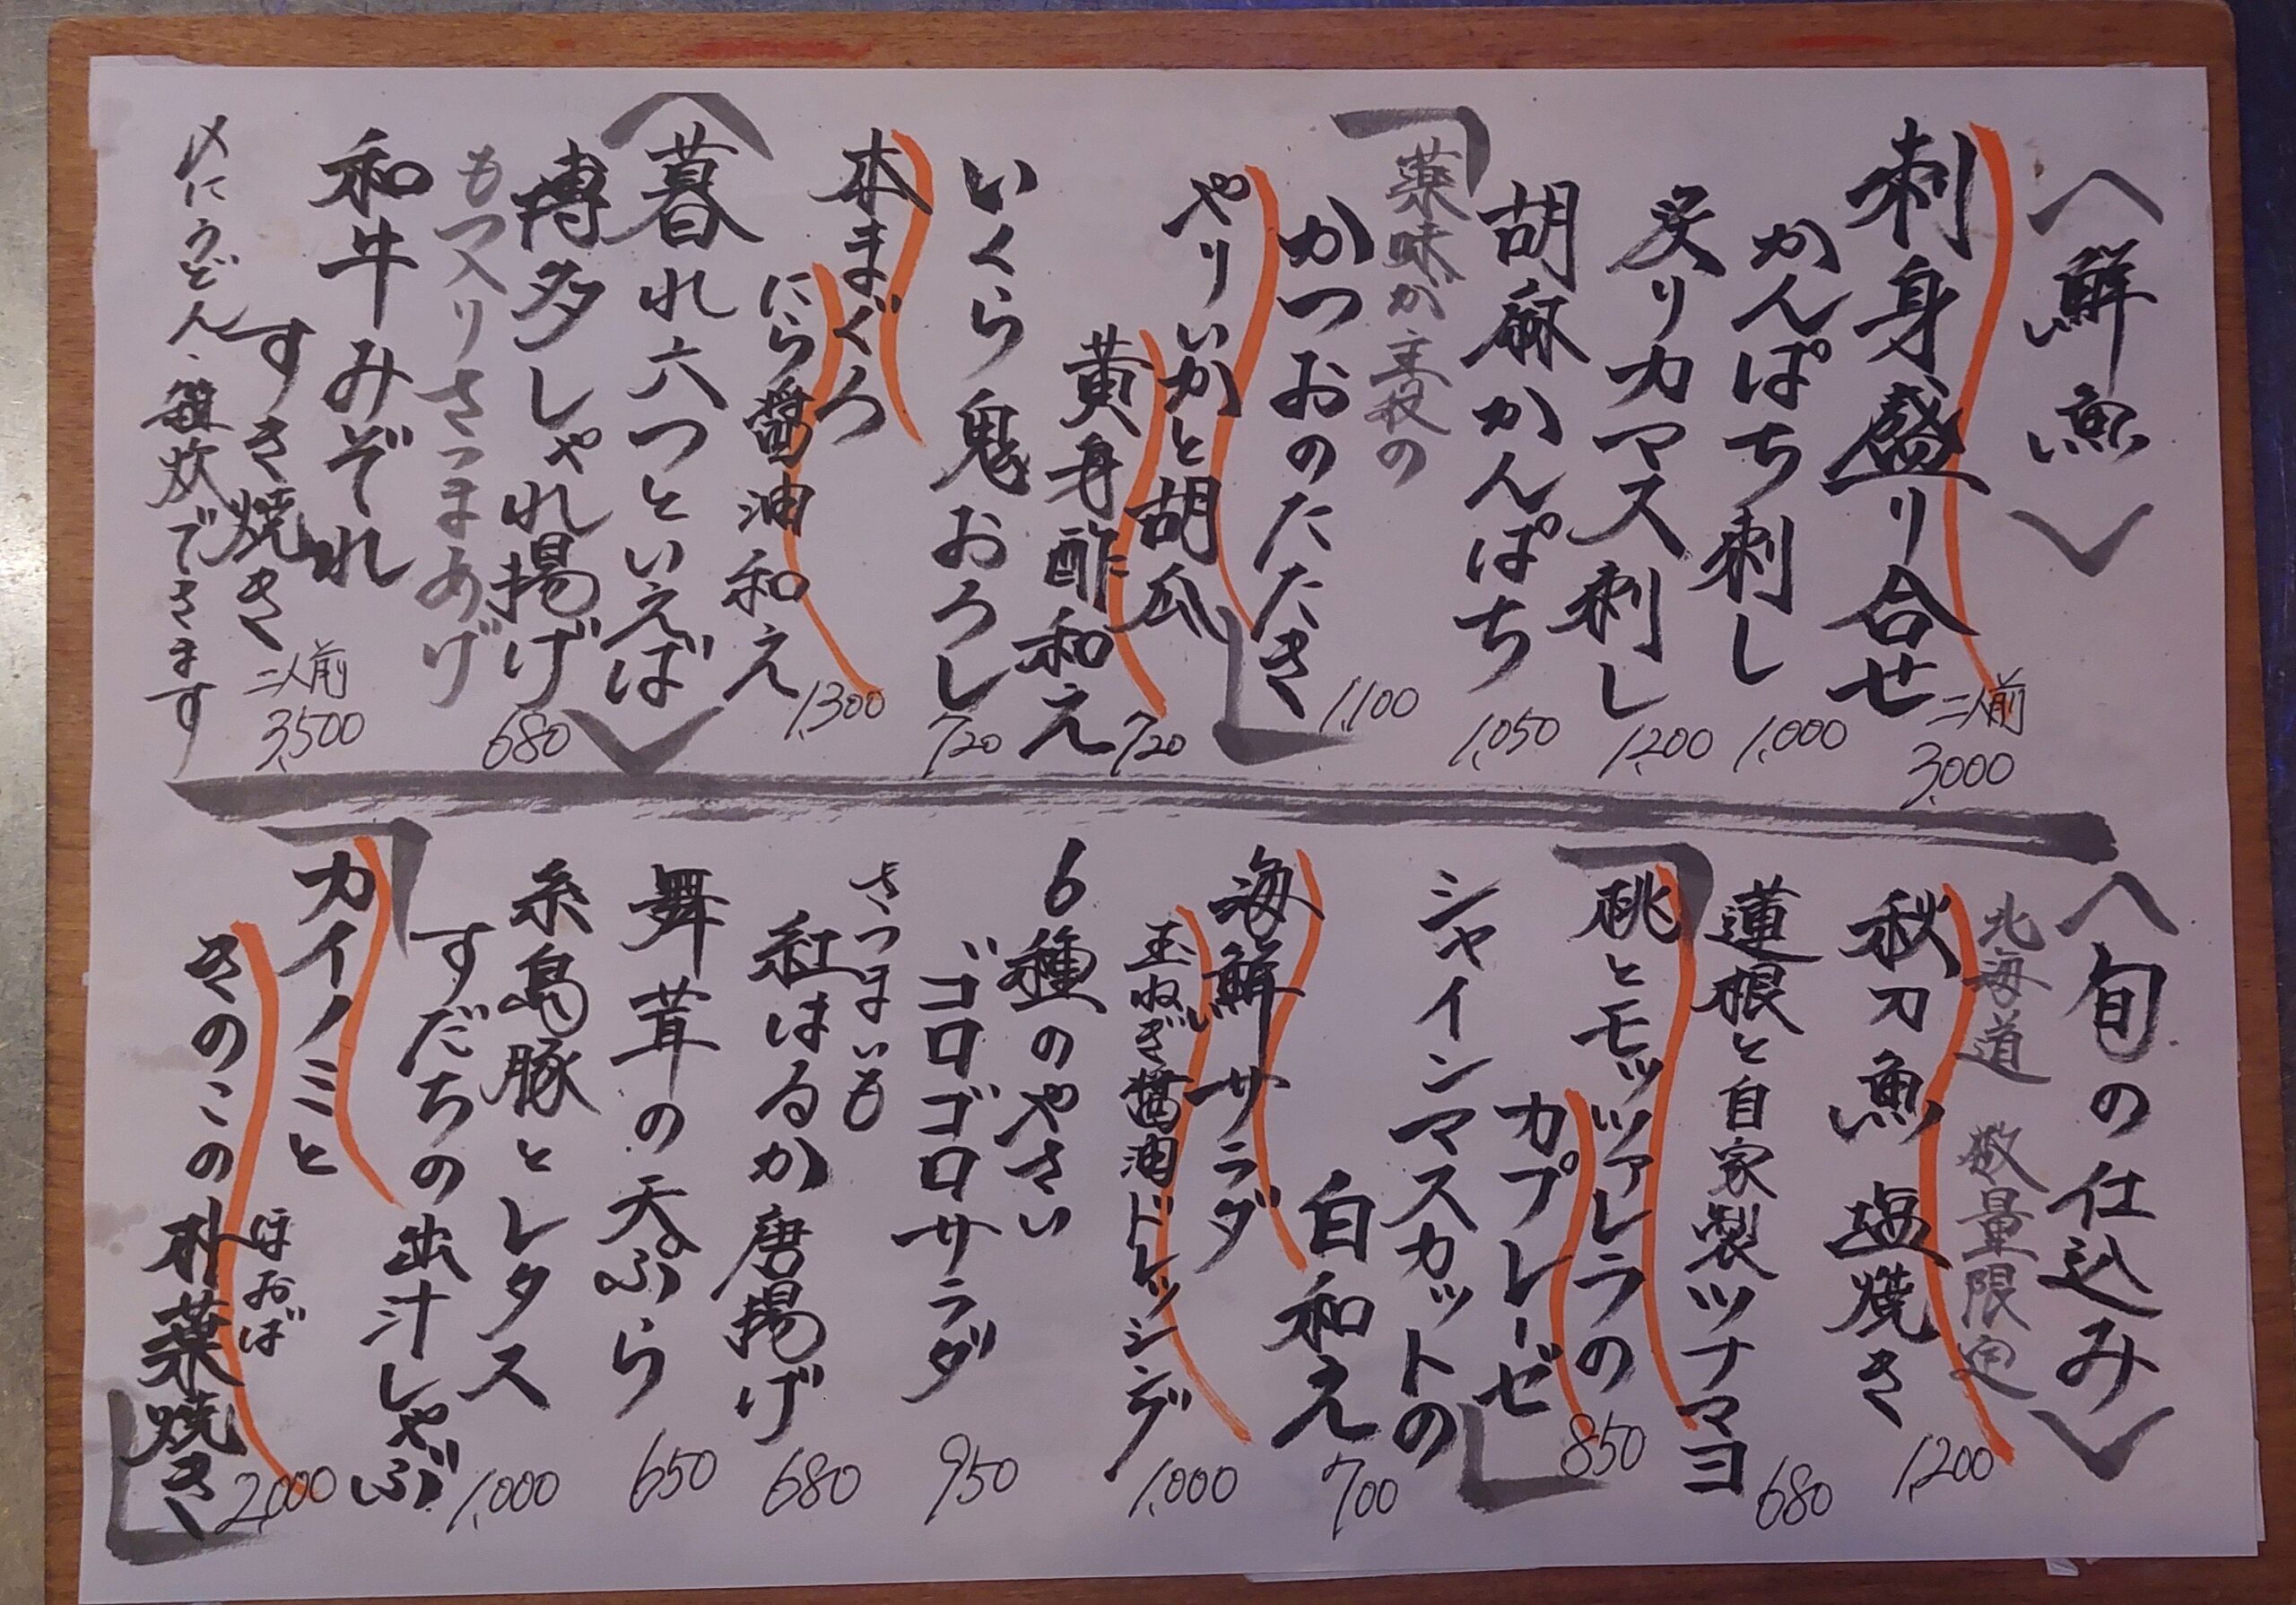 〈鮮魚〉
刺身盛り合せ
二人前
3,000
かんぱち刺し
1,000
炙りカマス刺し
1,200
胡麻かんぱち
1,050
「薬味が主役の
かつおのたたき」
1,100
やりいかと胡瓜
黄身酢和え
720
いくら鬼おろし
720
本まぐろ
にら醤油和え
1,300
〈暮れ六つといえば〉
博多しゃれ揚げ
680
もつ入りさつまあげ
和牛みぞれ
すき焼き
二人前
3,500
〆にうどん、雑炊できます
〈旬の仕込み〉
北海道 数量限定
秋刀魚 塩焼き
1,200
蓮根と自家製ツナマヨ
680
「桃とモッツァレラの
カプレーゼ」
850
シャインマスカットの
白和え
700
海鮮サラダ
玉ねぎ醤油ドレッシング
1,000
6種のやさい
ゴロゴロサラダ
950
さつまいも
紅はるか唐揚げ
680
舞茸の天ぷら
650
糸島豚とレタス
すだちの出汁しゃぶ
1,000
「カイノミと
ほおば
きのこの朴葉焼き」
2,000